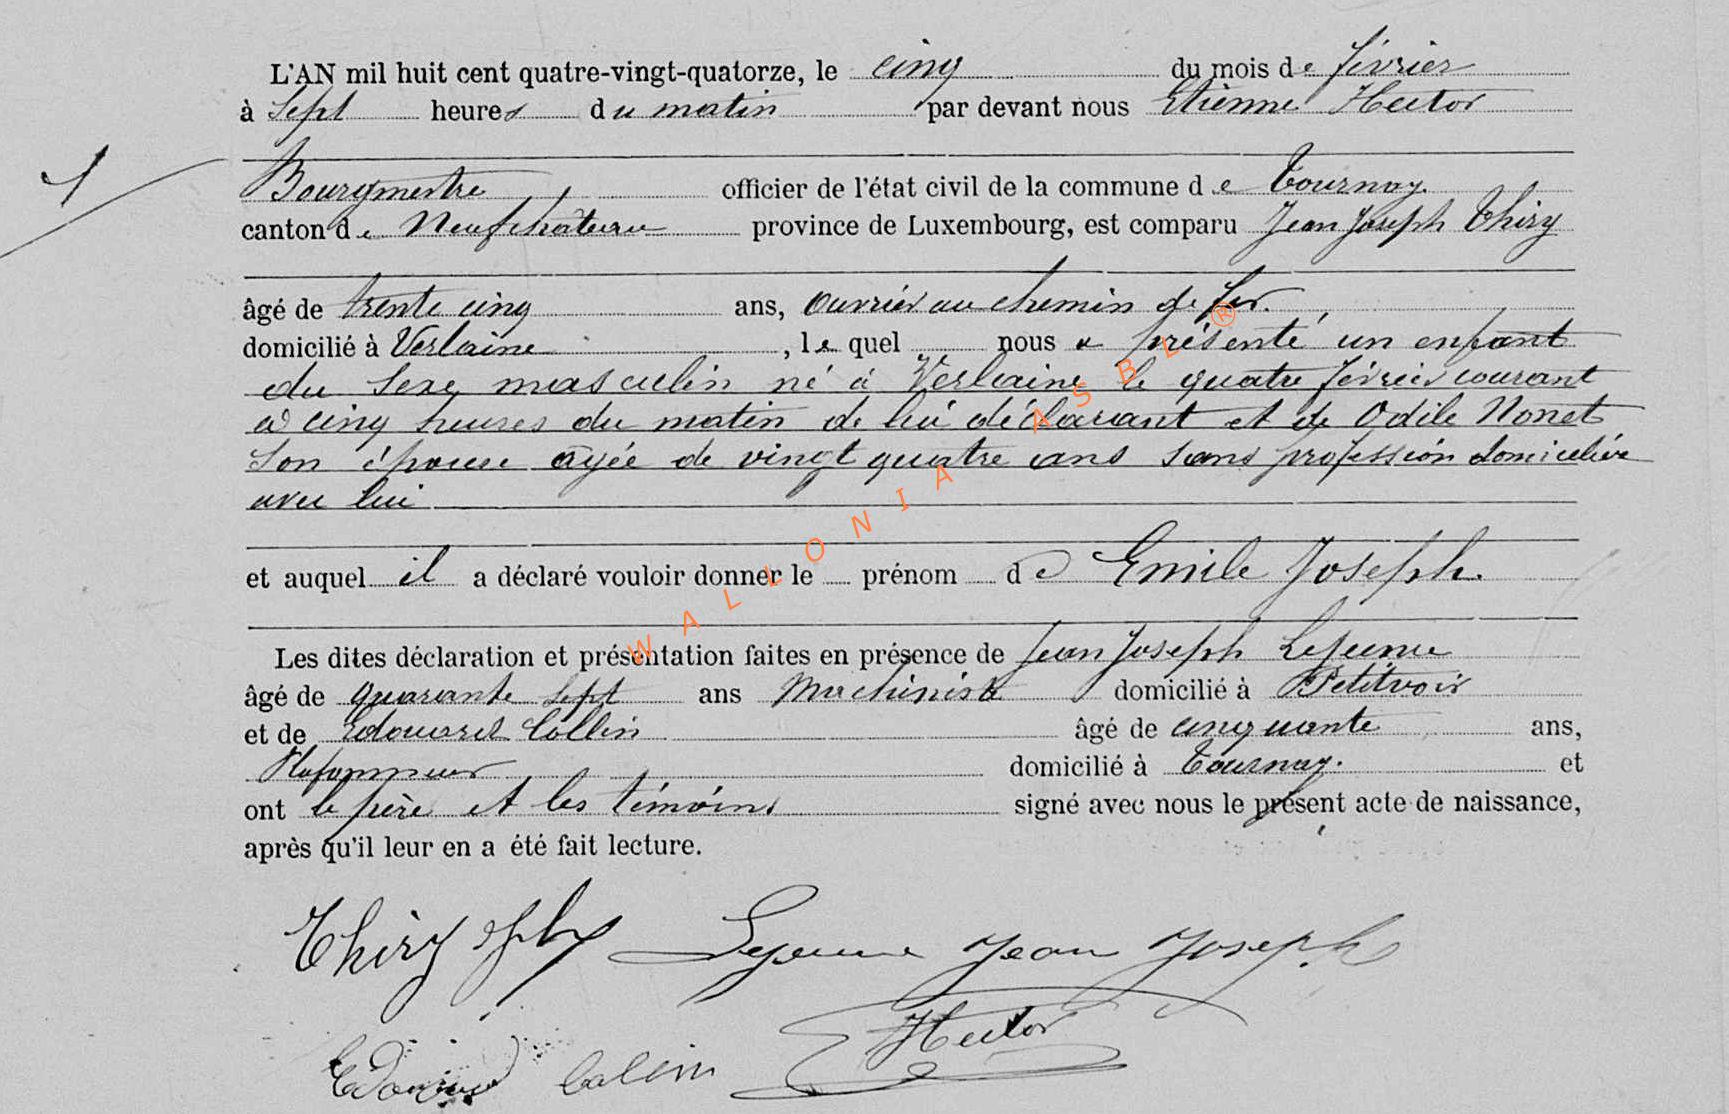 L'AN mil huit cent quatre-vingt-quatorze, le cinq du mois de février
à sept heures du matin par devant nous Etienne Hector
1
Bourgmestre officier de l'état civil de la commune de Tournay.
canton de Neufchâteau province de Luxembourg, est comparu Jean Joseph Thiry
âgé de trente cinq ans, ouvrier au chemin de fer.
domicilié à Verlaine, lequel nous a présenté un enfant
du sexe masculin né à Verlaine le quatre février courant
à cinq heures du matin de lui déclarant et de Odile Nonet
son épouse agée de vingt quatre ans sans profession domiciliée
avec lui
et auquel il a déclaré vouloir donner le prénom de Emile Joseph.
Les dites déclaration et présentation faites en présence de Jean Joseph Lejeune
âgé de quarante sept ans Machiniste domicilié à Petitvoir
et de Edouard Collin âgé de cinquante ans,
Plafonneur domicilié à Tournay. et
ont le père et les témoins signé avec nous le présent acte de naissance,
après qu'il leur en a été fait lecture.
Thiry Jph Lejeune Jean Joseph
Hector
Edouard Collin
WALLONIA ASBL ®